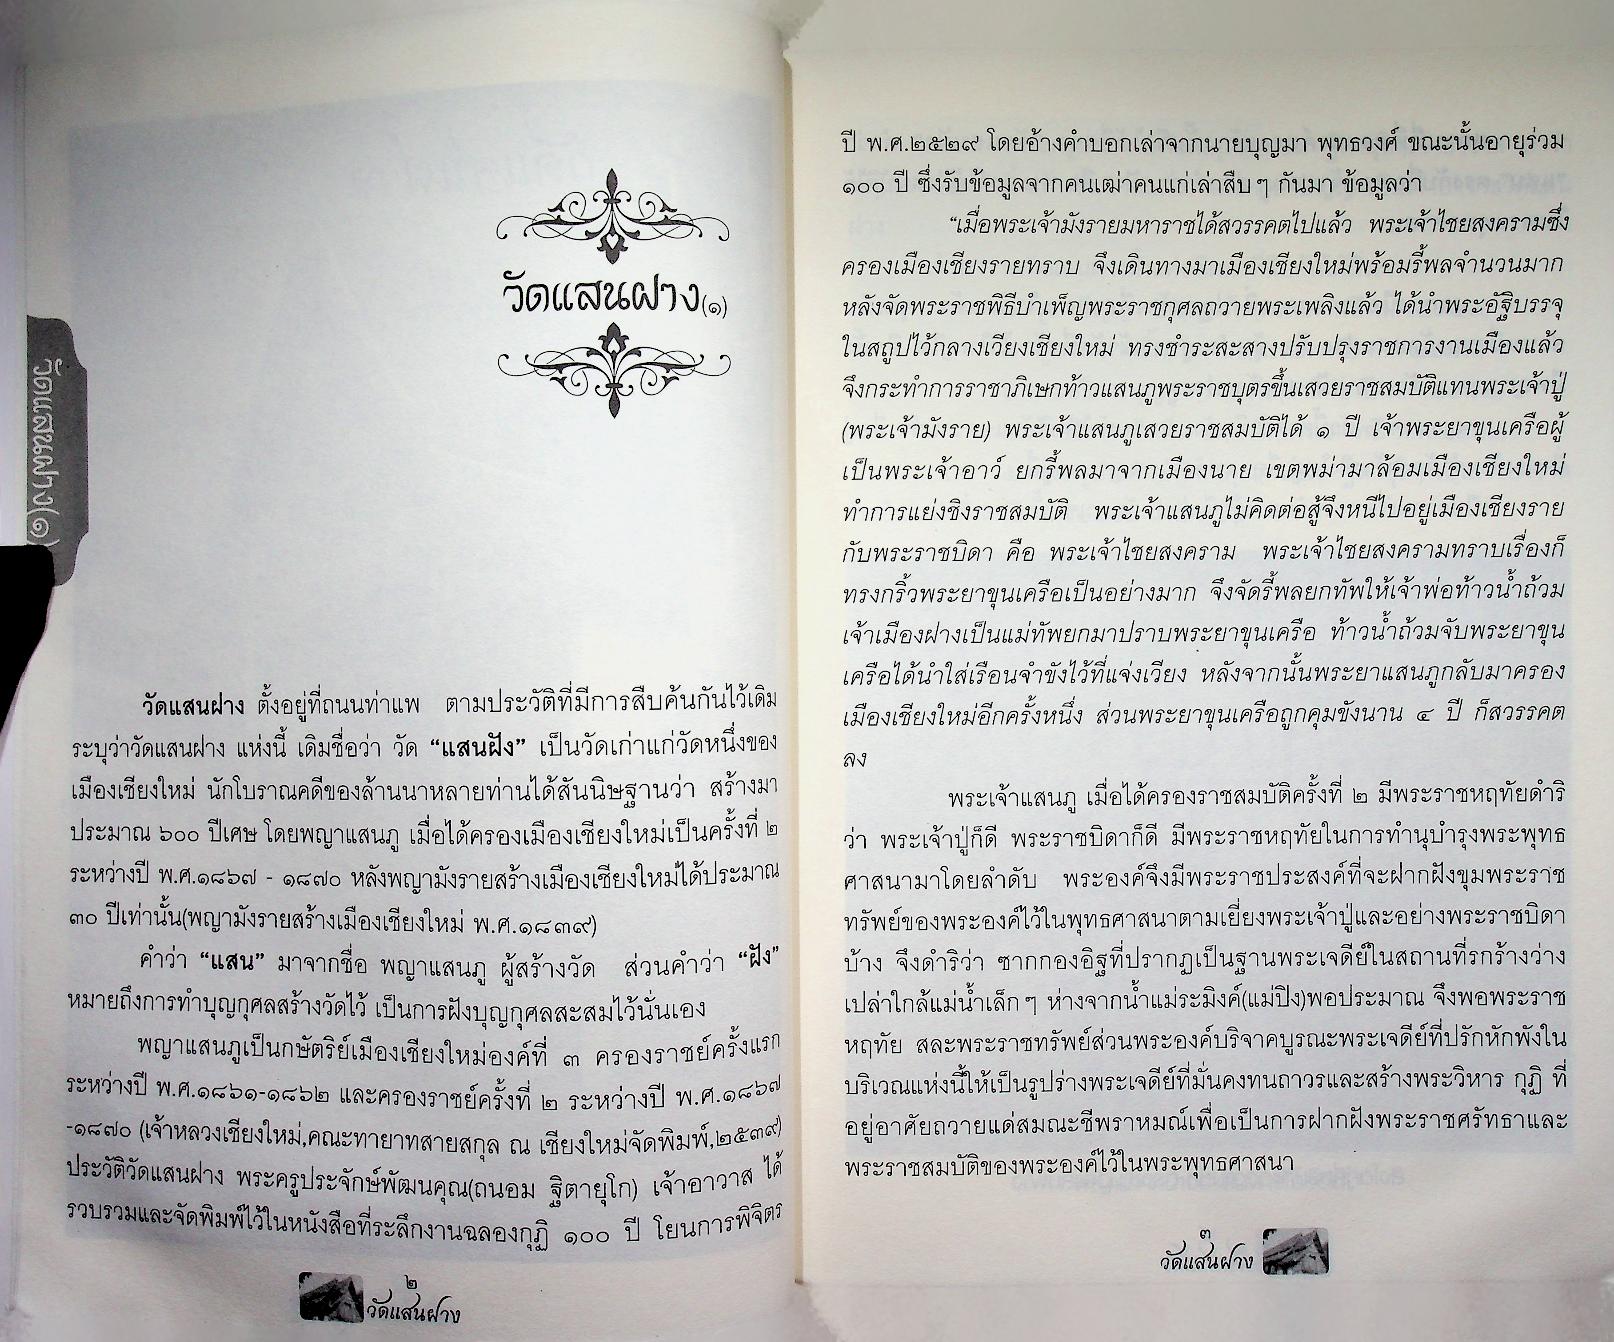 วัดแสนฝาง(๑)
วัดแสนฝาง(๑)
วัดแสนฝาง ตั้งอยู่ที่ถนนท่าแพ ตามประวัติที่มีการสืบค้นกันไว้เดิม
ระบุว่าวัดแสนฝาง แห่งนี้ เดิมชื่อว่า วัด “แสนฝัง” เป็นวัดเก่าแก่วัดหนึ่งของ
เมืองเชียงใหม่ นักโบราณคดีของล้านนาหลายท่านได้สันนิษฐานว่า สร้างมา
ประมาณ ๖๐๐ ปีเศษ โดยพญาแสนภู เมื่อได้ครองเมืองเชียงใหม่เป็นครั้งที่ ๒
ระหว่างปี พ.ศ.๑๘๖๗ - ๑๘๗๐ หลังพญามังรายสร้างเมืองเชียงใหม่ได้ประมาณ
๓๐ ปีเท่านั้น(พญามังรายสร้างเมืองเชียงใหม่ พ.ศ.๑๘๓๙)
คำว่า “แสน” มาจากชื่อ พญาแสนภู ผู้สร้างวัด ส่วนคำว่า “ฝัง”
หมายถึงการทำบุญกุศลสร้างวัดไว้ เป็นการฝังบุญกุศลสะสมไว้นั่นเอง
พญาแสนภูเป็นกษัตริย์เมืองเชียงใหม่องค์ที่ ๓ ครองราชย์ครั้งแรก
ระหว่างปี พ.ศ.๑๘๖๑-๑๘๖๒ และครองราชย์ครั้งที่ ๒ ระหว่างปี พ.ศ.๑๘๖๗
-๑๘๗๐ (เจ้าหลวงเชียงใหม่,คณะทายาทสายสกุล ณ เชียงใหม่จัดพิมพ์,๒๕๓๙)
ประวัติวัดแสนฝาง พระครูประจักษ์พัฒนคุณ(ถนอม ฐิตายุโก) เจ้าอาวาส ได้
รวบรวมและจัดพิมพ์ไว้ในหนังสือที่ระลึกงานฉลองกุฏิ ๑๐๐ ปี โยนการพิจิตร
๒
วัดแสนฝาง
ปี พ.ศ.๒๕๒๙ โดยอ้างคำบอกเล่าจากนายบุญมา พุทธวงศ์ ขณะนั้นอายุร่วม
๑๐๐ ปี ซึ่งรับข้อมูลจากคนเฒ่าคนแก่เล่าสืบๆ กันมา ข้อมูลว่า
“เมื่อพระเจ้ามังรายมหาราชได้สวรรคตไปแล้ว พระเจ้าไชยสงครามซึ่ง
ครองเมืองเชียงรายทราบ จึงเดินทางมาเมืองเชียงใหม่พร้อมรี้พลจำนวนมาก
หลังจัดพระราชพิธีบำเพ็ญพระราชกุศลถวายพระเพลิงแล้ว ได้นำพระอัฐิบรรจุ
ในสถูปไว้กลางเวียงเชียงใหม่ ทรงชำระสะสางปรับปรุงราชการงานเมืองแล้ว
จึงกระทำการราชาภิเษกท้าวแสนภูพระราชบุตรขึ้นเสวยราชสมบัติแทนพระเจ้าปู่
(พระเจ้ามังราย) พระเจ้าแสนภูเสวยราชสมบัติได้ ๑ ปี เจ้าพระยาขุนเครือผู้
เป็นพระเจ้าอาว์ ยกรี้พลมาจากเมืองนาย เขตพม่ามาล้อมเมืองเชียงใหม่
ทำการแย่งชิงราชสมบัติ พระเจ้าแสนภูไม่คิดต่อสู้จึงหนีไปอยู่เมืองเชียงราย
กับพระราชบิดา คือ พระเจ้าไชยสงคราม พระเจ้าไชยสงครามทราบเรื่องก็
ทรงกริ้วพระยาขุนเครือเป็นอย่างมาก จึงจัดรี้พลยกทัพให้เจ้าพ่อท้าวน้ำถ้วม
เจ้าเมืองฝางเป็นแม่ทัพยกมาปราบพระยาขุนเครือ ท้าวน้ำถ้วมจับพระยาขุน
เครือได้นำใส่เรือนจำขังไว้ที่แจ่งเวียง หลังจากนั้นพระยาแสนภูกลับมาครอง
เมืองเชียงใหม่อีกครั้งหนึ่ง ส่วนพระยาขุนเครือถูกคุมขังนาน ๔ ปี ก็สวรรคต
ลง
พระเจ้าแสนภู เมื่อได้ครองราชสมบัติครั้งที่ ๒ มีพระราชหฤทัยดำริ
ว่า พระเจ้าปู่ก็ดี พระราชบิดาก็ดี มีพระราชหฤทัยในการทำนุบำรุงพระพุทธ
ศาสนามาโดยลำดับ พระองค์จึงมีพระราชประสงค์ที่จะฝากฝังขุมพระราช
ทรัพย์ของพระองค์ไว้ในพุทธศาสนาตามเยี่ยงพระเจ้าปู่และอย่างพระราชบิดา
บ้าง จึงดำริว่า ซากกองอิฐที่ปรากฏเป็นฐานพระเจดีย์ในสถานที่รกร้างว่าง
เปล่าใกล้แม่น้ำเล็กๆ ห่างจากน้ำแม่ระมิงค์(แม่ปิง)พอประมาณ จึงพอพระราช
หฤทัย สละพระราชทรัพย์ส่วนพระองค์บริจาคบูรณะพระเจดีย์ที่ปรักหักพังใน
บริเวณแห่งนี้ให้เป็นรูปร่างพระเจดีย์ที่มั่นคงทนถาวรและสร้างพระวิหาร กุฏิ ที่
อยู่อาศัยถวายแด่สมณะชีพราหมณ์เพื่อเป็นการฝากฝังพระราชศรัทธาและ
พระราชสมบัติของพระองค์ไว้ในพระพุทธศาสนา
๓
วัดแสนฝาง